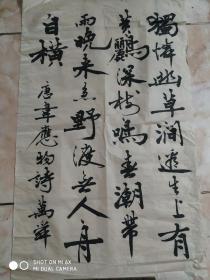 獨憐幽草澗邊生上有
黃鸝深樹鳴春潮帶
雨晚來急野渡無人舟
自橫 唐韋應物詩萬祥
SHOT ON MI 6X
MI DUAL CAMERA